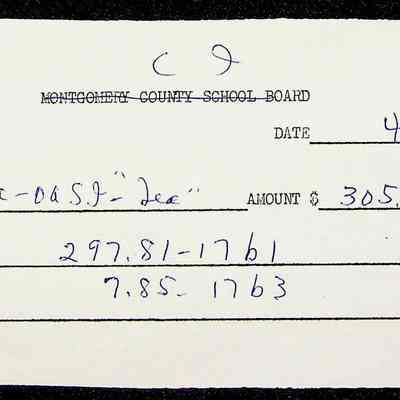 C I
MONTGOMERY COUNTY SCHOOL BOARD
DATE 4
AMOUNT $ 305.
297.81-1761
7.85- 1763